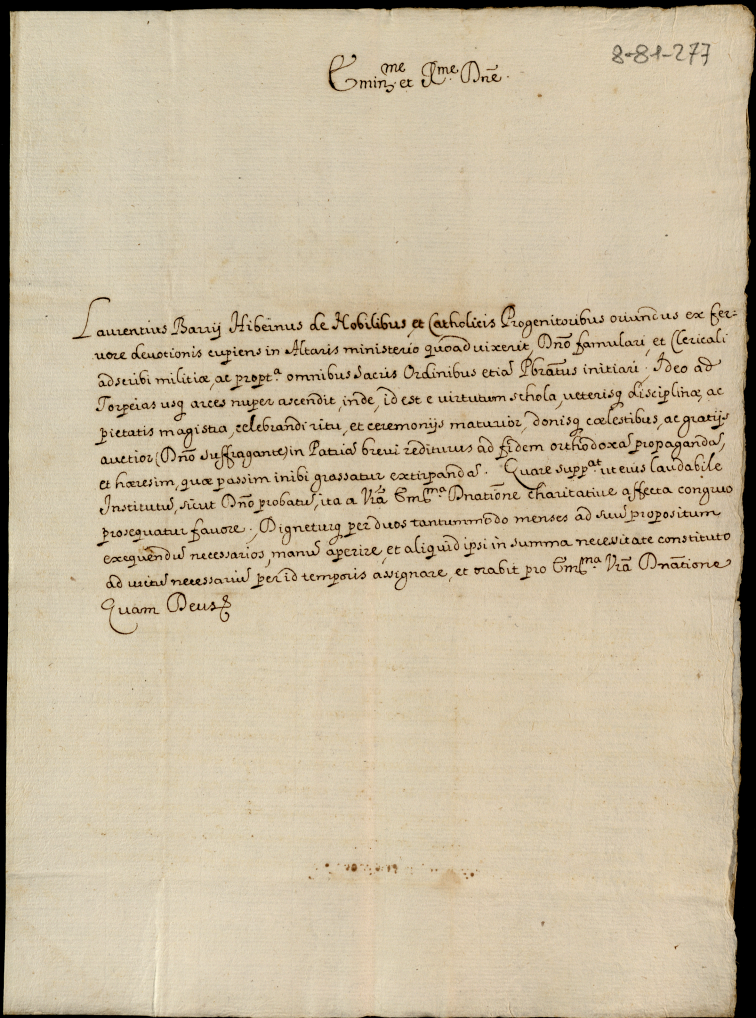 8-81-277
Emin.me et R.me Dn̄e.
Laurentius Barrÿ Hibernus de Nobilibus, et Catholicis Progenitoribus oriundus ex fer-
vore devotionis cupiens in Altaris ministerio quoad vixerit Dn̄o famulari, et Clericali
adscribi militiæ, ac propt.a omnibus Sacris Ordinibus etiā Pbrātus initiari. Ideo ad
Torpeias usq arces nuper ascendit, inde, id est e virtutum schola, veterisq disciplinæ, ac
pietatis magistra, celebrandi ritu, et ceremonijs maturior, donisq cælestibus, ac gratijs
auctior (Dn̄o suffragante) in Patriā brevi rediturus ad fidem orthodoxā propagandā,
et hæresim, quæ passim inibi grassatur extirpandā. Quare supp.at ut eius laudabile
Institutū, sicut Dn̄o probatū, ita a Vr̄a Em.ma Dnatione charitative affecta congruo
prosequatur favore. Digneturq per duos tantummodo menses ad suū propositum
exequendū necessarios, manū aperire, et aliquid ipsi in summa necessitate constituto
ad victū necessariū per id temporis assignare, et orabit pro Em.ma Vr̄a Dnatione
Quam Deus &